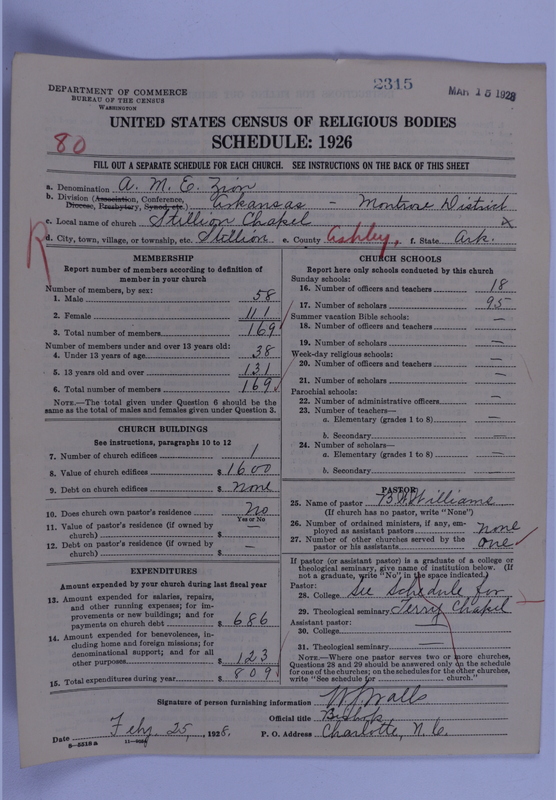 2315
MAR 15 1928
DEPARTMENT OF COMMERCE
BUREAU OF THE CENSUS
WASHINGTON
UNITED STATES CENSUS OF RELIGIOUS BODIES
SCHEDULE: 1926
80
FILL OUT A SEPARATE SCHEDULE FOR EACH CHURCH. SEE INSTRUCTIONS ON THE BACK OF THIS SHEET
a. Denomination A. M. E. Zion
b. Division (Association, Conference, Diocese, Presbytery, Synod, etc.) Arkansas - Montrose District
c. Local name of church Stillion Chapel x
R
d. City, town, village, or township, etc. Stillion e. County Ashley, f. State Ark.
MEMBERSHIP
Report number of members according to definition of
member in your church
Number of members, by sex:
1. Male 58
2. Female 111
3. Total number of members 169
Number of members under and over 13 years old:
4. Under 13 years of age 38
5. 13 years old and over 131
6. Total number of members 169
NOTE.—The total given under Question 6 should be the
same as the total of males and females given under Question 3.
CHURCH BUILDINGS
See instructions, paragraphs 10 to 12
7. Number of church edifices 1
8. Value of church edifices $ 1600
9. Debt on church edifices $ none
10. Does church own pastor's residence no
Yes or No
11. Value of pastor's residence (if owned by
church) $ —
12. Debt on pastor's residence (if owned by
church) $ —
EXPENDITURES
Amount expended by your church during last fiscal year
13. Amount expended for salaries, repairs,
and other running expenses; for im-
provements or new buildings; and for
payments on church debt $ 686
14. Amount expended for benevolences, in-
cluding home and foreign missions; for
denominational support; and for all
other purposes $ 123
15. Total expenditures during year $ 809
CHURCH SCHOOLS
Report here only schools conducted by this church
Sunday schools:
16. Number of officers and teachers 18
17. Number of scholars 95
Summer vacation Bible schools:
18. Number of officers and teachers —
19. Number of scholars —
Week-day religious schools:
20. Number of officers and teachers —
21. Number of scholars —
Parochial schools:
22. Number of administrative officers —
23. Number of teachers—
a. Elementary (grades 1 to 8) —
b. Secondary —
24. Number of scholars—
a. Elementary (grades 1 to 8) —
b. Secondary —
PASTOR
25. Name of pastor Williams
(If church has no pastor, write "None")
26. Number of ordained ministers, if any, em-
ployed as assistant pastors none
27. Number of other churches served by the
pastor or his assistants one
If pastor (or assistant pastor) is a graduate of a college or
theological seminary, give name of institution below. (If
not a graduate, write "No" in the space indicated.)
Pastor:
28. College See Schedule for
29. Theological seminary Terry Chapel
Assistant pastor:
30. College —
31. Theological seminary —
NOTE.—Where one pastor serves two or more churches,
Questions 28 and 29 should be answered only on the schedule
for one of the churches; on the schedules for the other churches,
write "See schedule for church."
Signature of person furnishing information W J Walls
Official title Bishop
Date Feby. 25, 1928. P. O. Address Charlotte, N. C.
8-5518 a